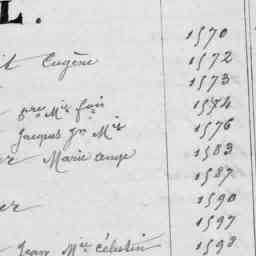 L.
1570
it Eugène 1572
1573
pre Mie foi 1574
Jacques jn Mie 1576
er Marie ange 1583
1587
er 1590
1597
Jean Mie Célestin 1598